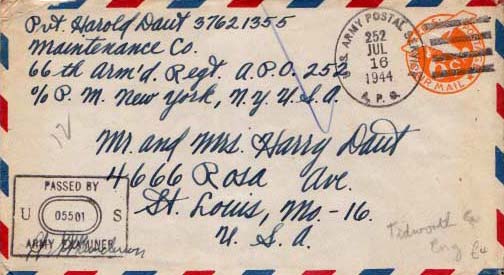 Pvt. Harold Daut 37621355
Maintenance Co.
66th Arm'd. Regt. A.P.O. 252
c/o P.M. New York, N.Y. U.S.A.
U.S. ARMY POSTAL SERVICE
252
JUL
16
1944
A.P.O.
AIR MAIL
12
Mr. and Mrs. Harry Daut
4666 Rosa Ave.
St. Louis, Mo.-16.
U.S.A.
PASSED BY
U 05501 S
ARMY EXAMINER
Tidworth
Eng